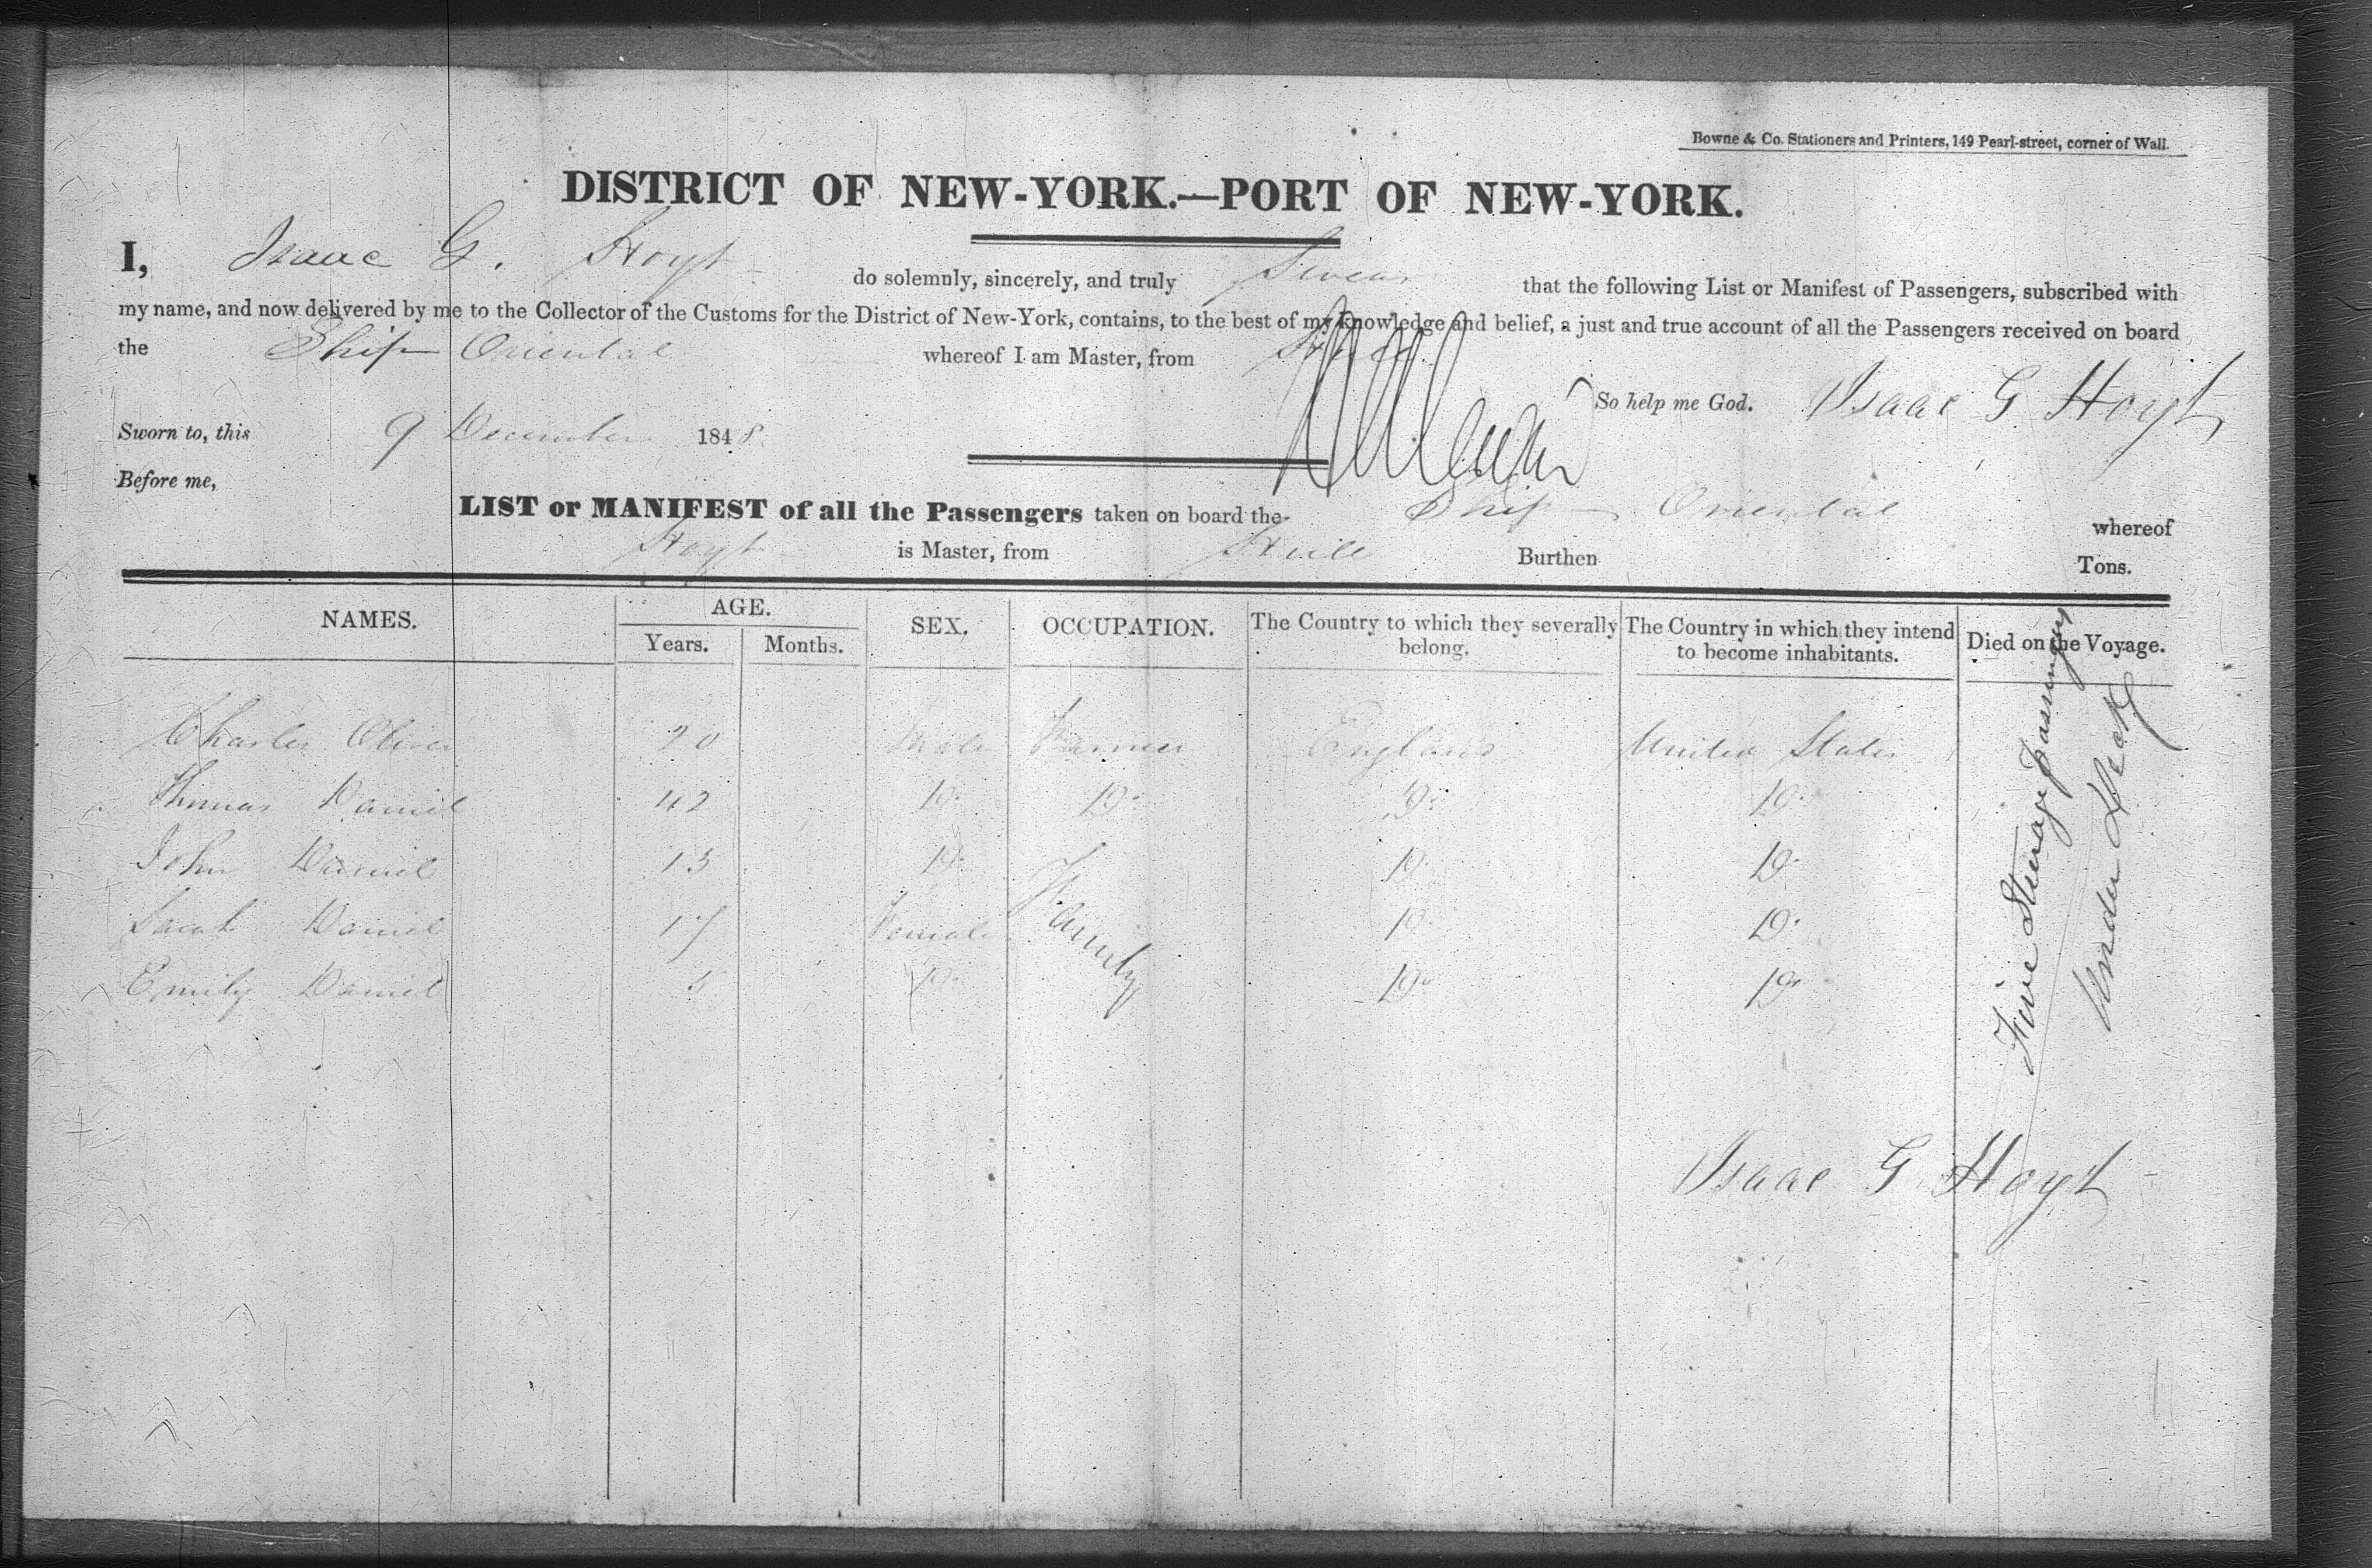 Bowne & Co. Stationers and Printers, 149 Pearl-street, corner of Wall.
DISTRICT OF NEW-YORK.—PORT OF NEW-YORK.
I, Isaac G. Hoyt do solemnly, sincerely, and truly Swear that the following List or Manifest of Passengers, subscribed with
my name, and now delivered by me to the Collector of the Customs for the District of New-York, contains, to the best of my knowledge and belief, a just and true account of all the Passengers received on board
the Ship Oriental whereof I am Master, from Hull
So help me God. Isaac G Hoyt
Sworn to, this 9 December 1848.
Before me,
LIST or MANIFEST of all the Passengers taken on board the Ship Oriental whereof
Hoyt is Master, from Hull Burthen Tons.
NAMES. AGE. Years. Months. SEX. OCCUPATION. The Country to which they severally belong. The Country in which they intend to become inhabitants. Died on the Voyage.
Charles Oliver 20 Male Farmer England United States
Thomas Daniel 42 Do Do Do Do
John Daniel 13 Do Do Do
Sarah Daniel 17 Female Family Do Do
Emily Daniel 5 Do Do Do
Five Steerage passengers
Under Deck
Isaac G Hoyt